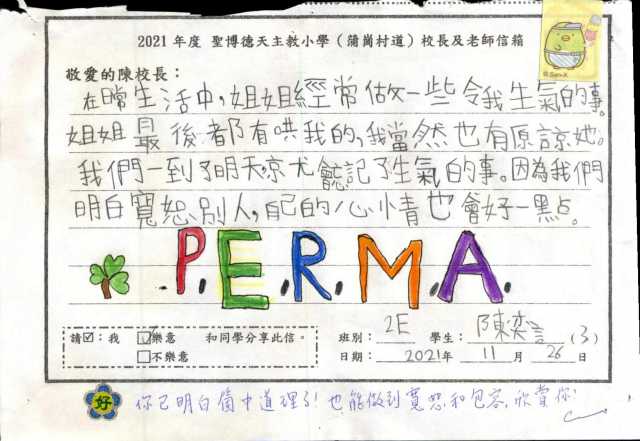 2021 年度 聖博德天主教小學（蒲崗村道）校長及老師信箱
敬愛的陳校長：
在日常生活中，姐姐經常做一些令我生氣的事。
姐姐最後都有哄我的，我當然也有原諒她。
我們一到了明天，就忘記了生氣的事。因為我們
明白寬恕別人，自己的心情也會好一點。
P.E.R.M.A.
請☑：我 ☑樂意 和同學分享此信。
□不樂意
班別： 2E 學生： 陳奕言 (3)
日期： 2021年 11 月 26 日
好 你已明白箇中道理了！也能做到寬恕和包容，欣賞你！